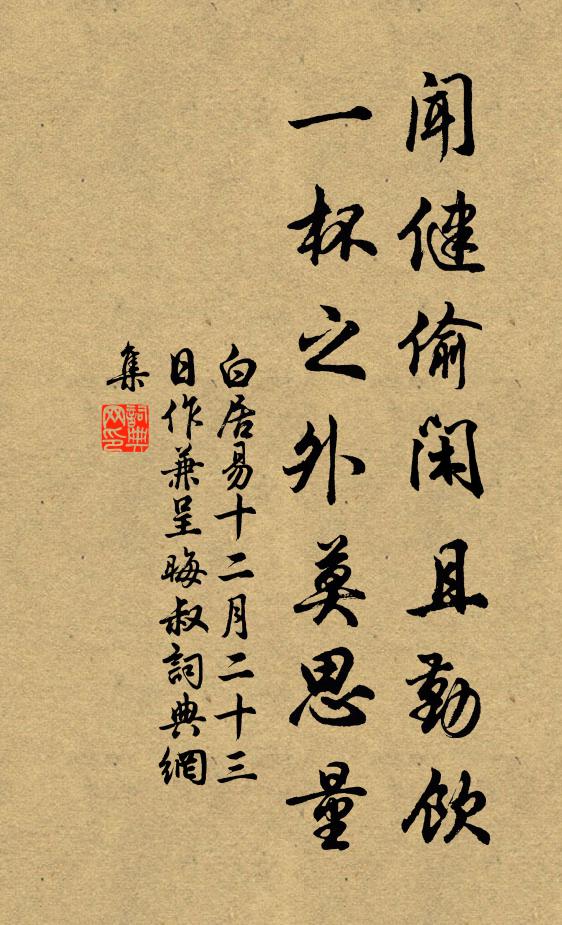 聞健偷閑且勤飲
一杯之外莫思量
白居易十二月二十三
日作兼呈晦叔詞典網
集
詞典
网印